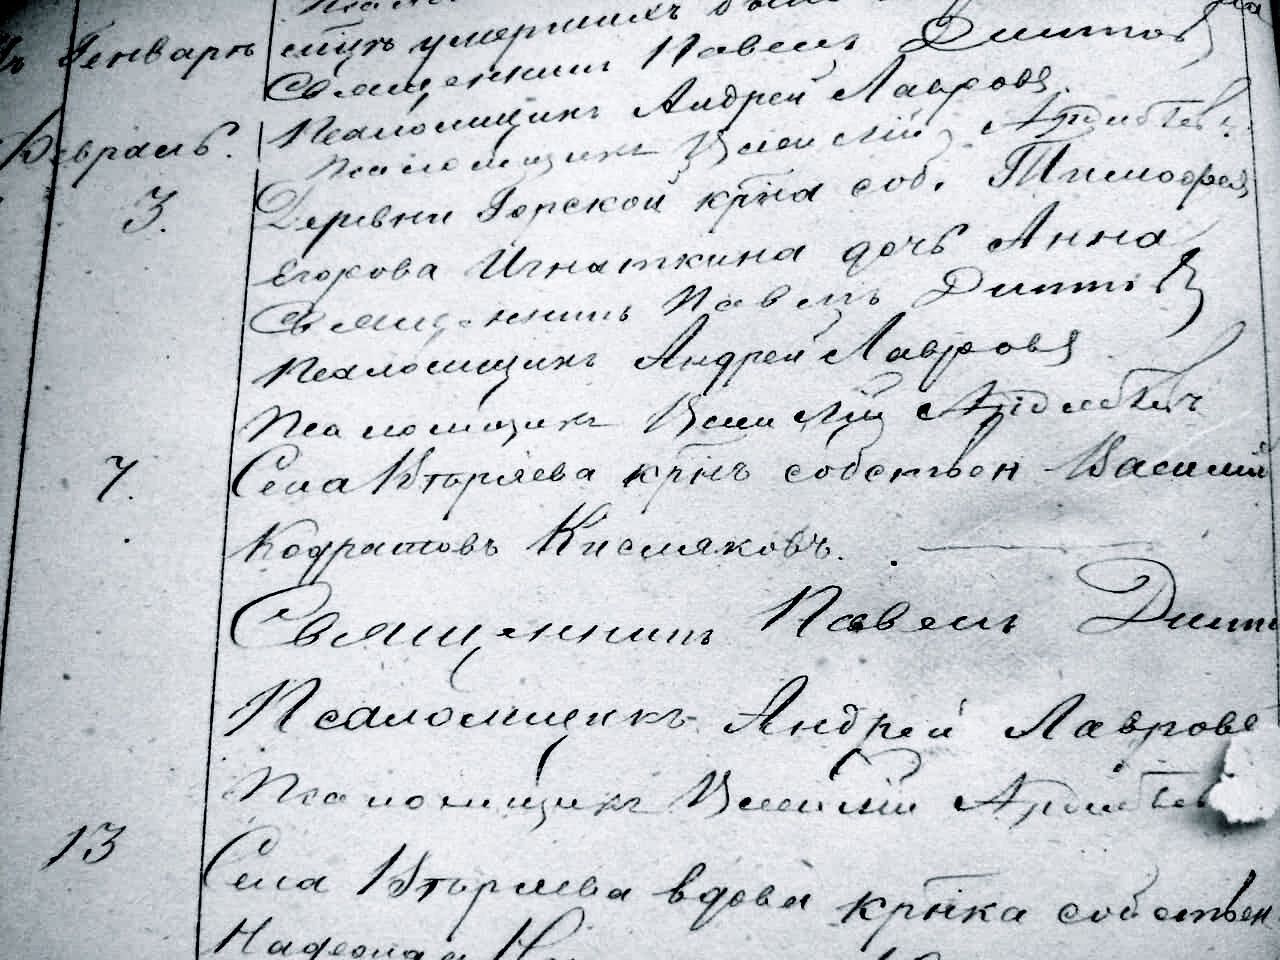 Январѣ
сихъ умершихъ
Священникъ Павелъ Дмитров
Псаломщикъ Андрей Лавровъ
Февраль.
Псаломщикъ Василий
3. Деревни Горской крⷭ҇на соб. Тимофея
Егорова Игнаткина дочь Анна
Священникъ Павелъ Дмит
Псаломщикъ Андрей Лавровъ
Псаломщикъ Василій
7. Села Втыряева крⷭ҇нъ собствен Василий
Кодратовъ Кисляковъ.
Священникъ Павелъ Дмит
Псаломщикъ Андрей Лавровъ
Псаломщикъ Василій
13 Села Втыряева вдова крⷭ҇нка собствен